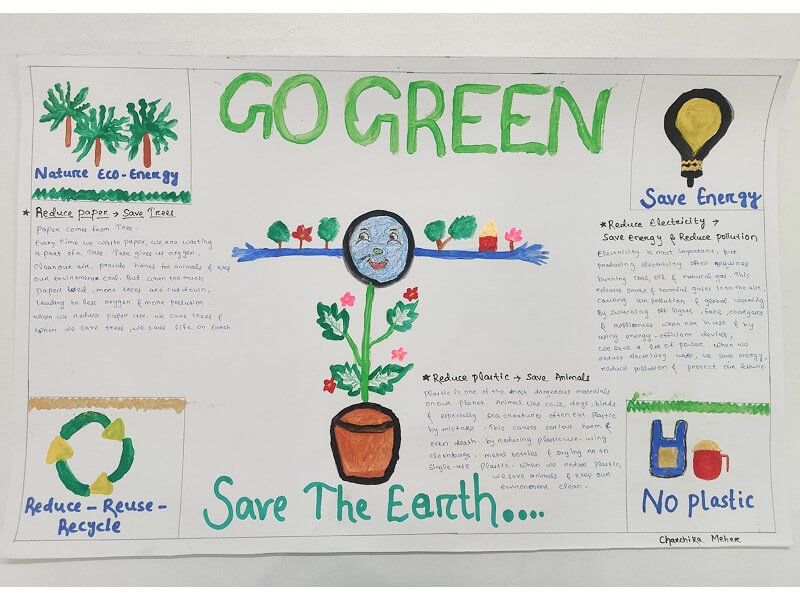 GO GREEN
Nature Eco-Energy
★ Reduce paper → Save Trees
Paper comes from Tree.
Every time we waste paper, we are wasting
a part of a Tree. Tree gives us oxygen,
Clean our air, provide homes for animals & keep
our environment cool. But when too much
Paper used, more trees are cut down,
leading to less oxygen & more pollution.
When we reduce paper use, we save trees &
when we save trees, we save life on Earth
Save Energy
★ Reduce Electricity →
Save Energy & Reduce Pollution
Electricity is most important, but
producing electricity often requires
burning coal, oil & natural gas. This
releases smoke & harmful gases into the air
causing air pollution & global warming
By switching off lights, fans, chargers
& appliances when not in use & by
using energy-efficient devices,
we save a lot of power. When we
reduce electricity use, we save energy,
reduce pollution & protect our future.
★ Reduce plastic → Save Animals
Plastic is one of the most dangerous materials
on our planet. Animal like cows, dogs, birds
& especially sea creatures often eat plastic
by mistake. This causes serious harm &
even death. by reducing plastic use - using
cloth bags, metal bottles & saying no to
single-use plastic. When we reduce plastic,
we save animals & keep our
environment clean.
Reduce - Reuse -
Recycle
Save The Earth....
No plastic
Charchika Meher